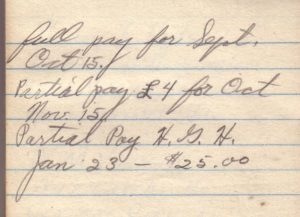 full pay for Sept.
Oct 15.
Partial pay £4 for Oct
Nov. 15
Partial Pay H. G. H.
Jan 23 — $25.00